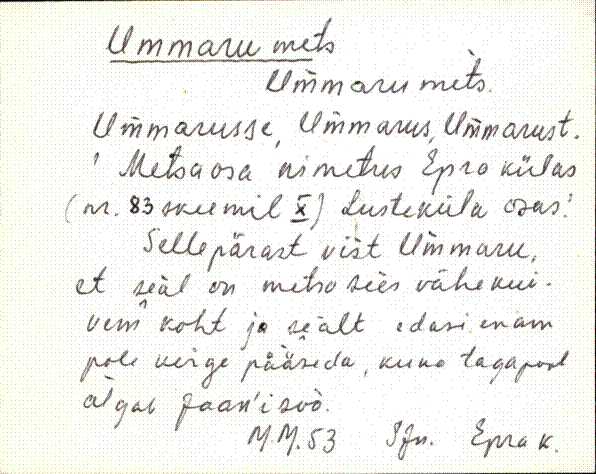 Ummaru mets
Um̄maru mèts.
Um̄marusse, Um̄marus, Um̄marust.
' Metsaosa nimetus Epra külas
(nr. 83 skeemil X) Lusteküla osas.
Sellepärast vist Um̄maru,
et seäl on metsa sees vähe kui-
vem koht ja seält edasi enam
pole kerge pääseda, kuna tagapool
algab Jaan'i soo.
M M. 53 Epra k.